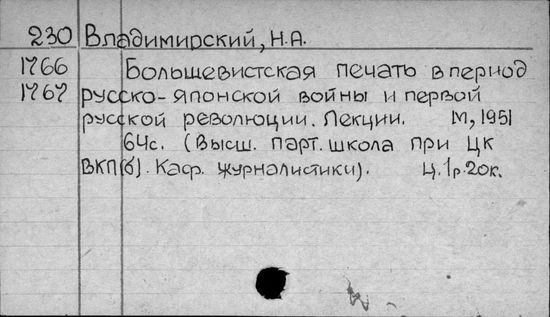 230 Владимирский, Н.А.
1766 Большевистская печать в период
1767 русско-японской войны и первой
русской революции. Лекции. М, 1951
64с. (Высш. парт. школа при ЦК
ВКП(б). Каф. журналистики). Ц. 1р. 20к.